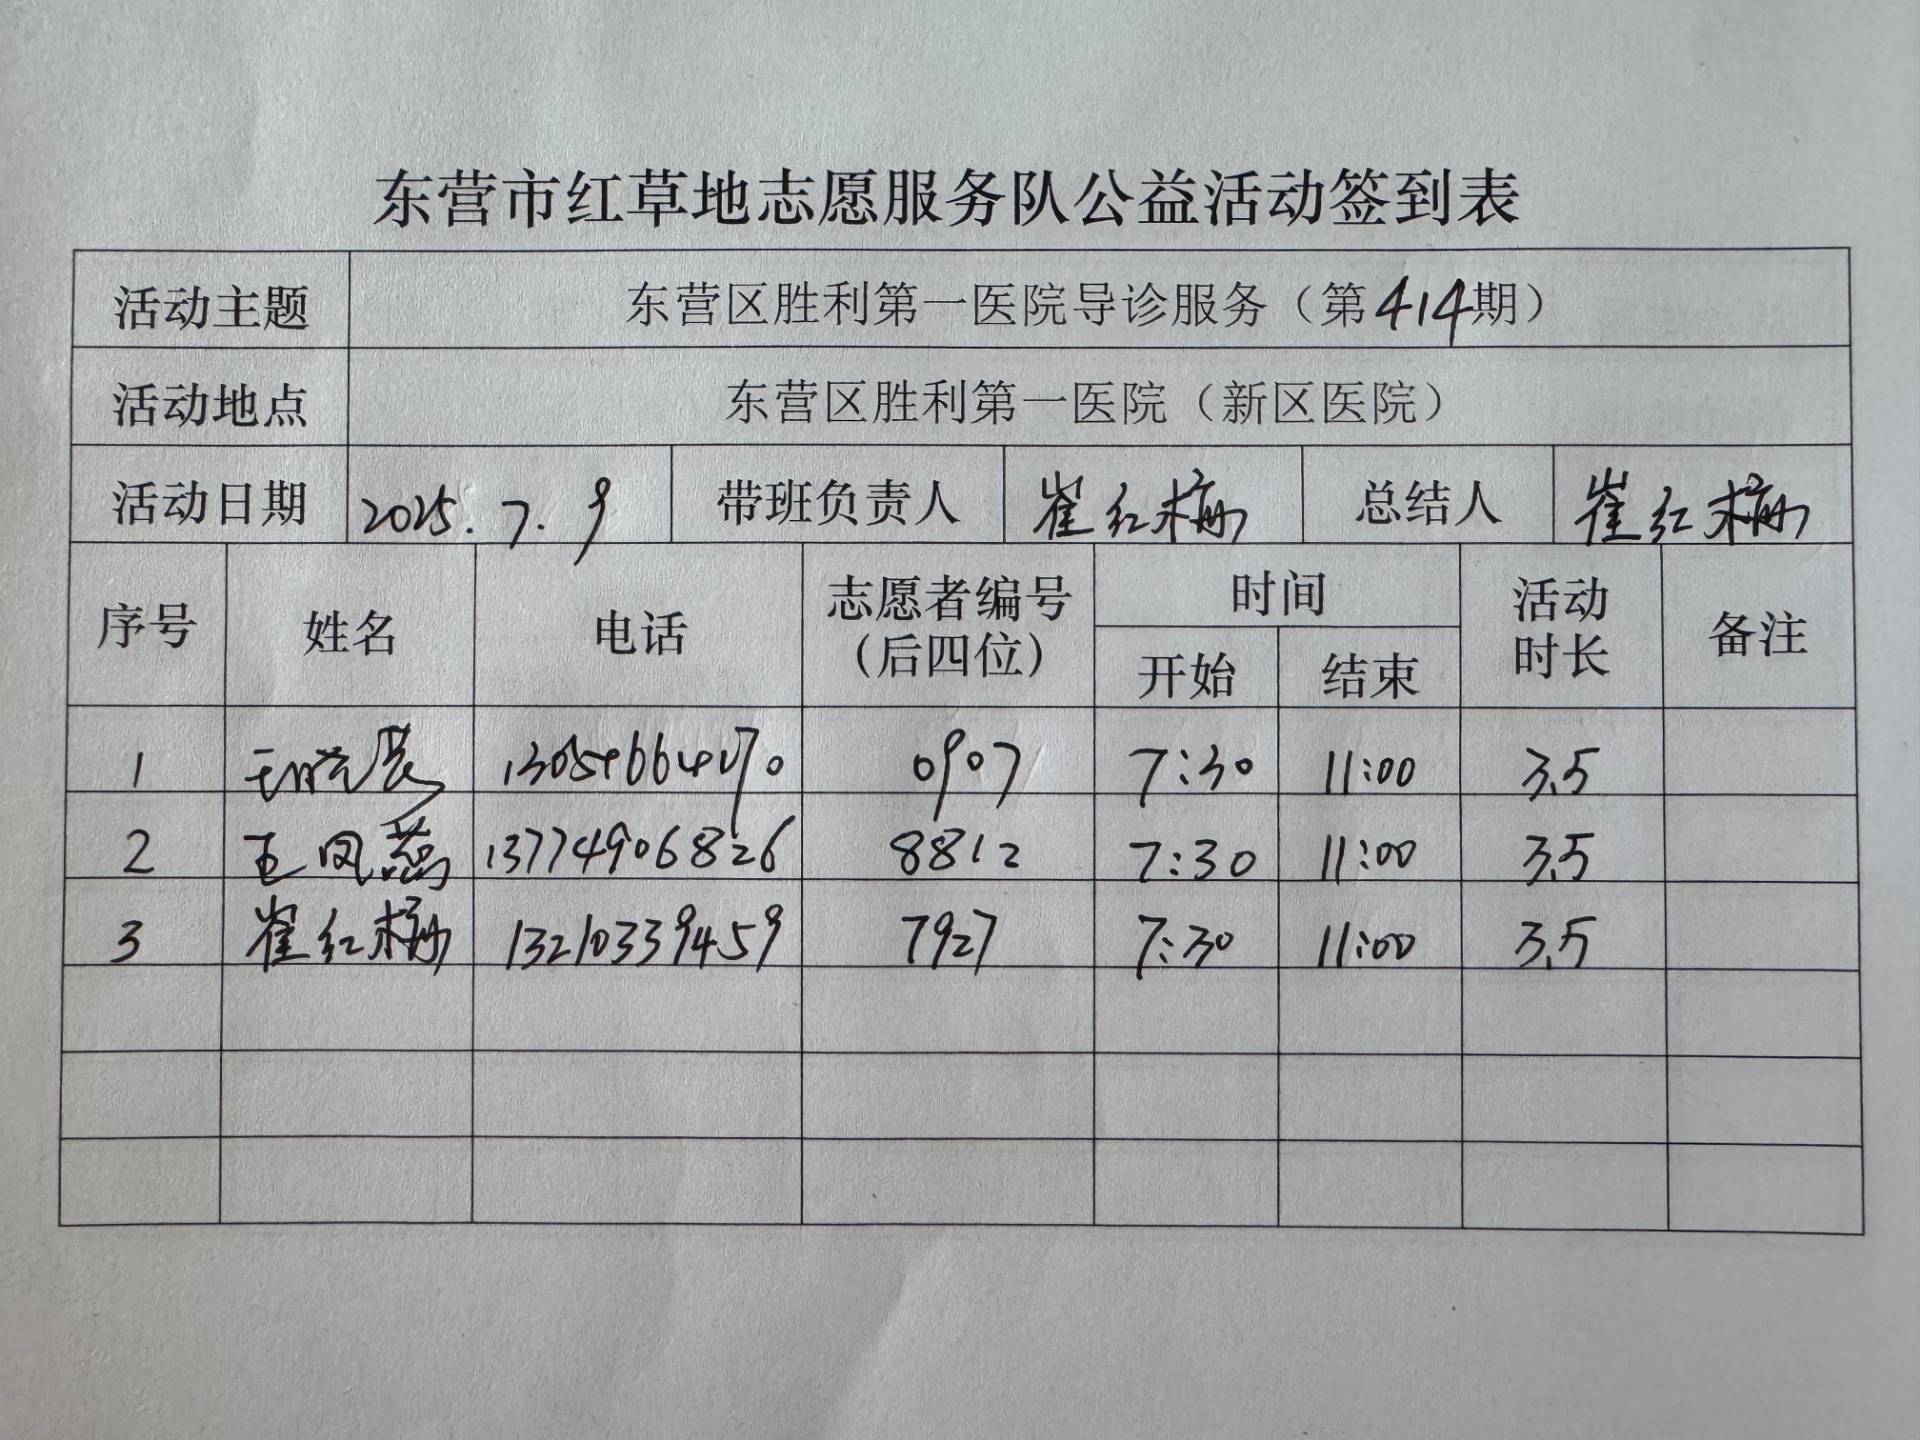 东营市红草地志愿服务队公益活动签到表
活动主题 东营区胜利第一医院导诊服务（第414期）
活动地点 东营区胜利第一医院（新区医院）
活动日期 2025.7.9 带班负责人 崔红梅 总结人 崔红梅
序号 姓名 电话 志愿者编号（后四位） 时间 开始 结束 活动时长 备注
1 0907 7:30 11:00 3.5
2 王凤蕊 13774906826 8812 7:30 11:00 3.5
3 崔红梅 13210339459 7927 7:30 11:00 3.5